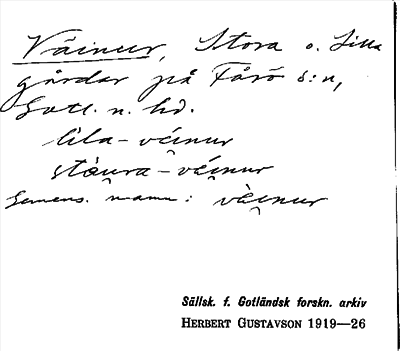 Väinur, Stora o. Lilla
gårdar på Fårö s:n,
Gotl. n. hd.
lila-väi̯nur
stàu̯ra-väi̯nur
Gemens. namn: väi̯nur
Sällsk. f. Gotländsk forskn. arkiv
HERBERT GUSTAVSON 1919—26